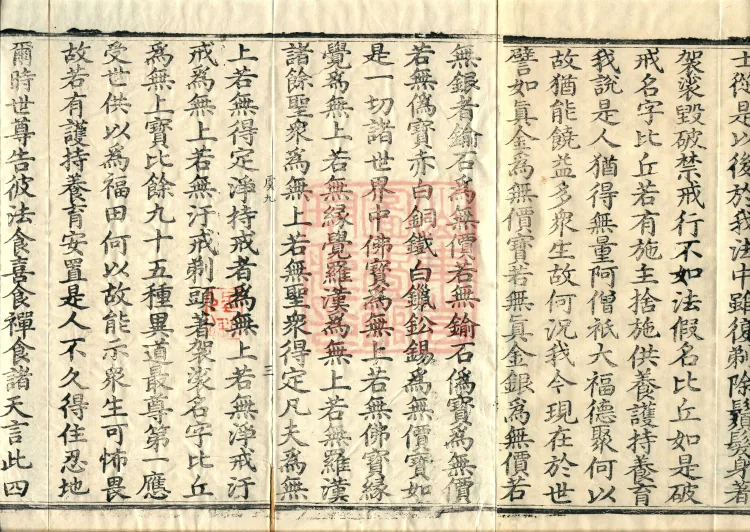 士從是以後於我法中雖復剃除鬚髮身著
袈裟毀破禁戒行不如法假名比丘如是破
戒名字比丘若有施主捨施供養護持養育
我說是人猶得無量阿僧祇大福德聚何以
故猶能饒益多衆生故何況我今現在於世
譬如眞金爲無價寶若無眞金銀爲無價若
無銀者鍮石爲無價若無鍮石僞寶爲無價
若無僞寶赤白銅鐵白鑞鈆錫爲無價寶如
是一切諸世界中佛寶爲無上若無佛寶緣
覺爲無上若無緣覺羅漢爲無上若無羅漢
諸餘聖衆爲無上若無聖衆得定凡夫爲無
虞九
三
上若無得定淨持戒者爲無上若無淨戒汙
戒爲無上若無汙戒剃頭著袈裟名字比丘
爲無上寶比餘九十五種異道最尊第一應
受世供以爲福田何以故能示衆生可怖畏
故若有護持養育安置是人不久得住忍地
爾時世尊告彼法食喜食禪食諸天言此四